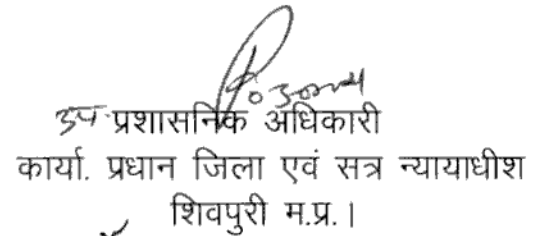 उप प्रशासनिक अधिकारी
कार्या. प्रधान जिला एवं सत्र न्यायाधीश
शिवपुरी म.प्र.।